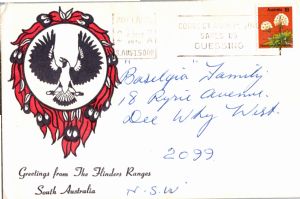 CORRECT
SAVES US
GUESSING
Australia 18
"Baselyia" Family
18 Ryrie Avenue.
Dee Why West.
2099
N.S.W
Greetings from The Flinders Ranges
South Australia